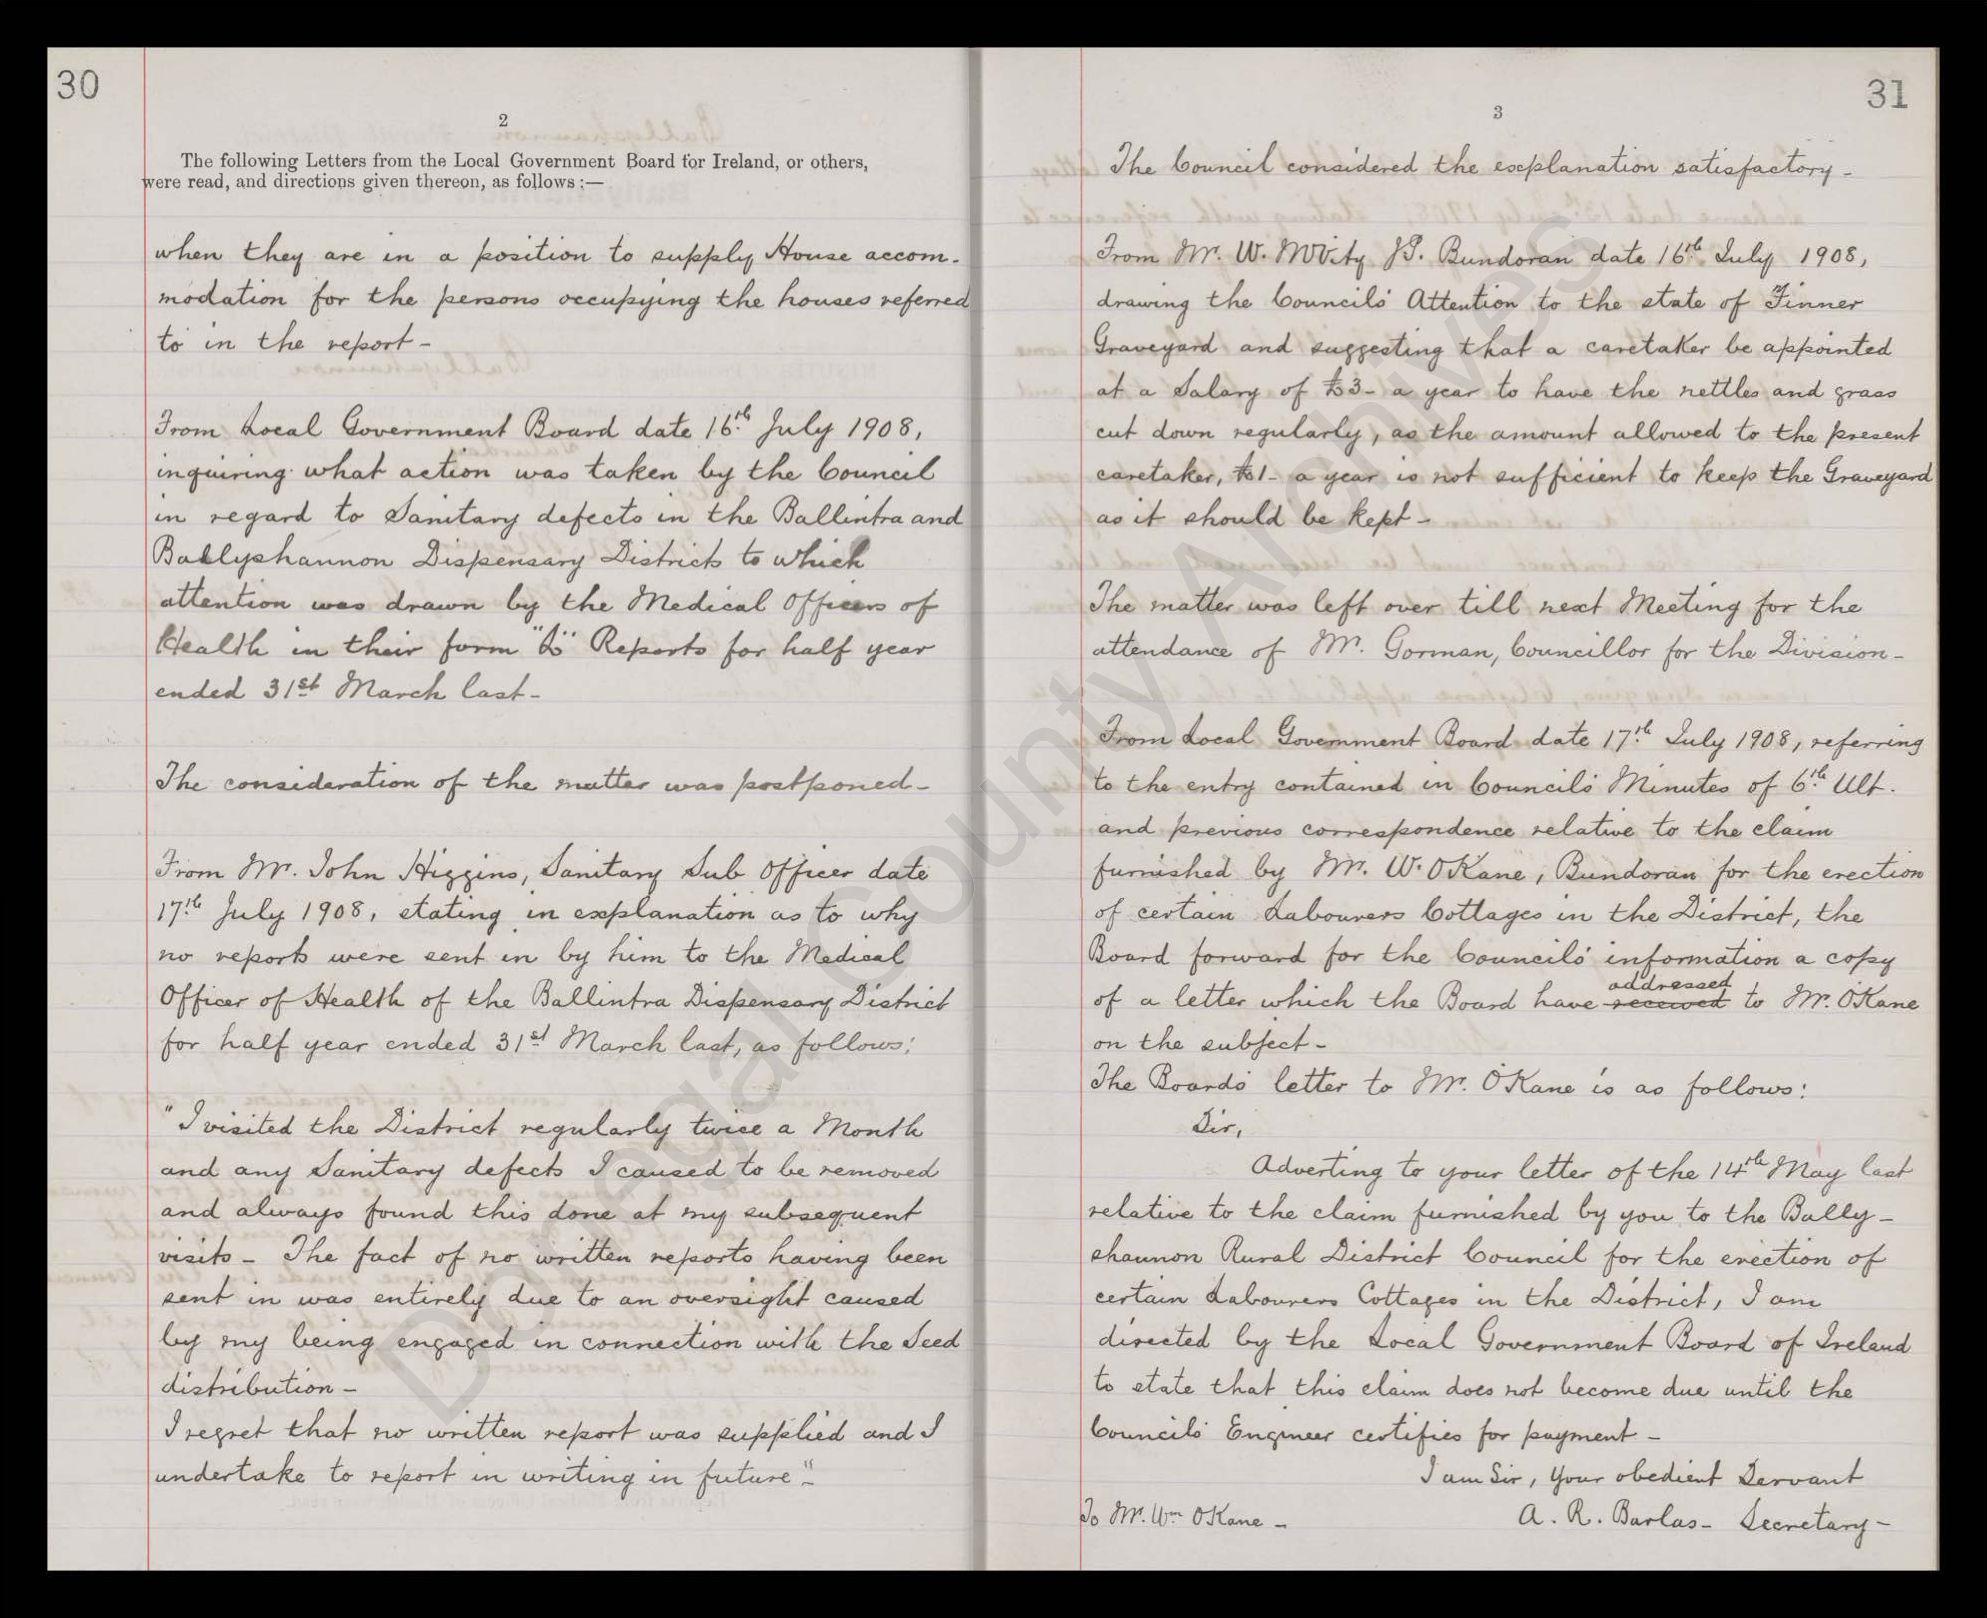 30
2
The following Letters from the Local Government Board for Ireland, or others,
were read, and directions given thereon, as follows :—
when they are in a position to supply House accom-
modation for the persons occupying the houses referred
to in the report -
From Local Government Board date 16th July 1908,
inquiring what action was taken by the Council
in regard to Sanitary defects in the Ballintra and
Ballyshannon Dispensary Districts to which
attention was drawn by the Medical Officers of
Health in their form "L" Reports for half year
ended 31st March last -
The consideration of the matter was postponed -
From Mr. John Higgins, Sanitary Sub Officer date
17th July 1908, stating in explanation as to why
no reports were sent in by him to the Medical
Officer of Health of the Ballintra Dispensary District
for half year ended 31st March last, as follows:
"I visited the District regularly twice a Month
and any Sanitary defects I caused to be removed
and always found this done at my subsequent
visits - The fact of no written reports having been
sent in was entirely due to an oversight caused
by my being engaged in connection with the Seed
distribution -
I regret that no written report was supplied and I
undertake to report in writing in future" -
31
3
The Council considered the explanation satisfactory -
From Mr. W. J.P. Bundoran date 16th July 1908,
drawing the Council's Attention to the state of Finner
Graveyard and suggesting that a caretaker be appointed
at a Salary of £3 - a year to have the nettles and grass
cut down regularly, as the amount allowed to the present
caretaker, £1 - a year is not sufficient to keep the Graveyard
as it should be kept -
The matter was left over till next Meeting for the
attendance of Mr. Gorman, Councillor for the Division -
From Local Government Board date 17th July 1908, referring
to the entry contained in Council's Minutes of 6th Ult.
and previous correspondence relative to the claim
furnished by Mr. W. O'Kane, Bundoran for the erection
of certain Labourers Cottages in the District, the
Board forward for the Council's information a copy
addressed
of a letter which the Board have received to Mr. O'Kane
on the subject -
The Board's letter to Mr. O'Kane is as follows:
Sir,
Adverting to your letter of the 14th May last
relative to the claim furnished by you to the Bally-
shannon Rural District Council for the erection of
certain Labourers Cottages in the District, I am
directed by the Local Government Board of Ireland
to state that this claim does not become due until the
Council's Engineer certifies for payment -
I am Sir, Your obedient Servant
To Mr. Wm O'Kane - A. R. Barlas - Secretary -
Donegal County Archives